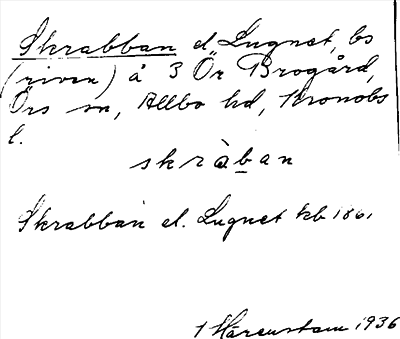 Skrabban el. Lugnet, bs
(riven) å 3 Ör Brogård,
Örs sn, Allbo hd, Kronobs
l.
skràban
Skrabban el. Lugnet hb 1861
1936